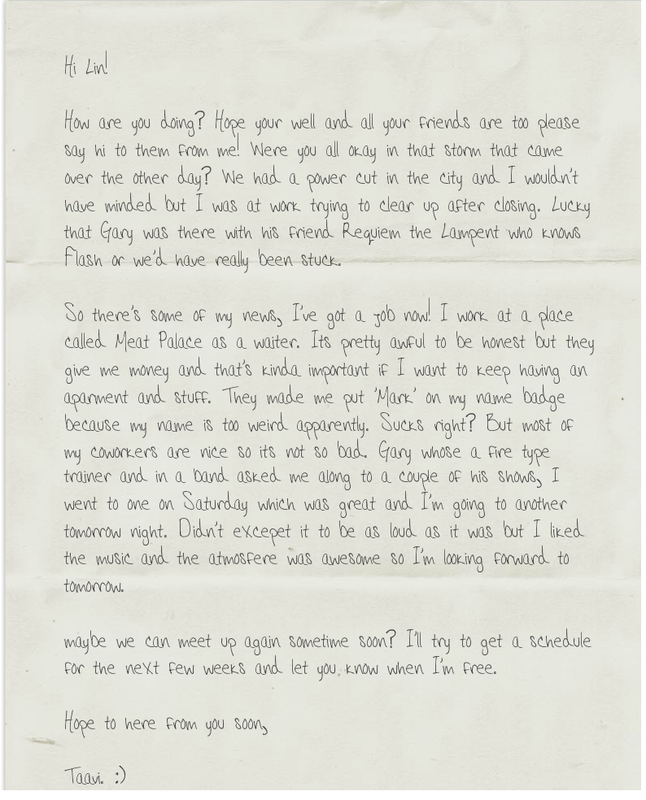 Hi Lin!
How are you doing? Hope your well and all your friends are too please
say hi to them from me! Were you all okay in that storm that came
over the other day? We had a power cut in the city and I wouldn't
have minded but I was at work trying to clear up after closing. Lucky
that Gary was there with his friend Requiem the Lampent who knows
Flash or we'd have really been stuck.
So there's some of my news, I've got a job now! I work at a place
called Meat Palace as a waiter. Its pretty awful to be honest but they
give me money and that's kinda important if I want to keep having an
aparment and stuff. They made me put 'Mark' on my name badge
because my name is too weird apparently. Sucks right? But most of
my coworkers are nice so its not so bad. Gary whose a fire type
trainer and in a band asked me along to a couple of his shows, I
went to one on Saturday which was great and I'm going to another
tomorrow night. Didn't excepet it to be as loud as it was but I liked
the music and the atmosfere was awesome so I'm looking forward to
tomorrow.
maybe we can meet up again sometime soon? I'll try to get a schedule
for the next few weeks and let you know when I'm free.
Hope to here from you soon,
Taavi. :)